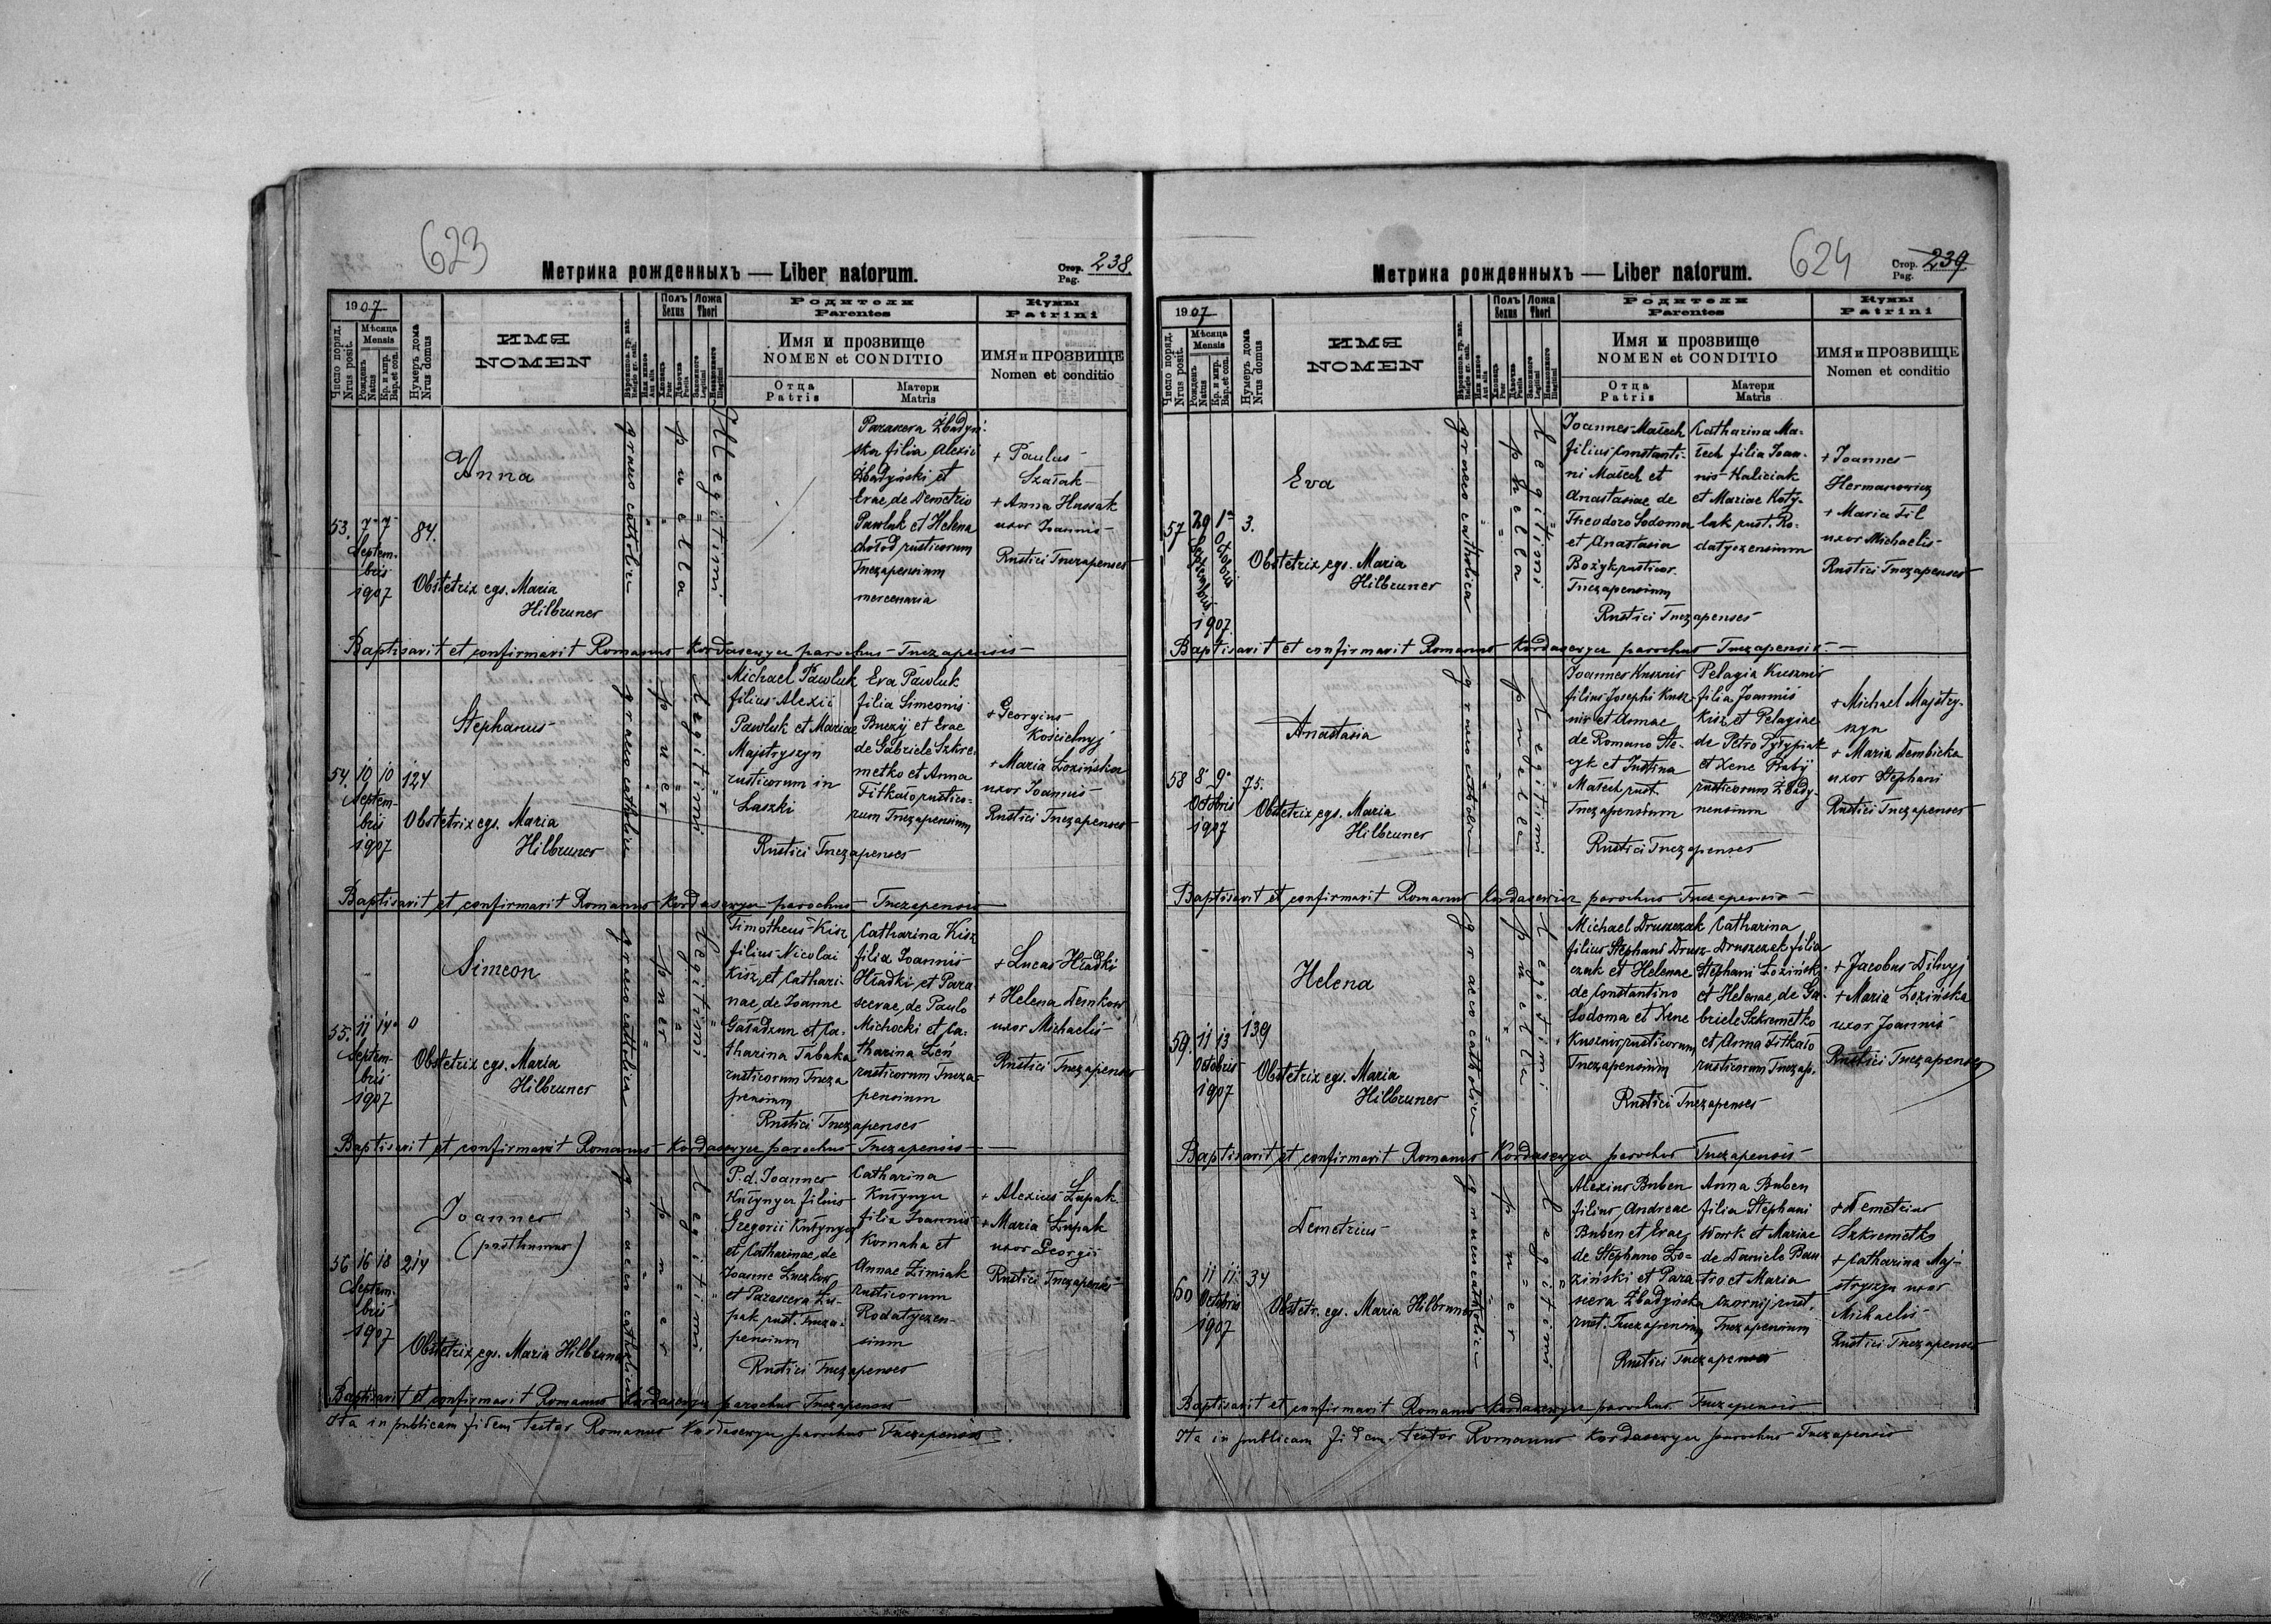 623
Метрика рожденныхъ — Liber natorum.
Стор. Pag. 238.
1907
Число поряд. Nrus posit.
Мѣсяца Mensis
Рожденъ Natus
Кр. и мир. Bap. et con.
Нумеръ дома Nrus domus
ИМЯ
NOMEN
Полъ Sexus
Ложа Thori
Родители
Parentes
Имя и прозвище
NOMEN et CONDITIO
Отца Patris
Матери Matris
Кумы
Patrini
ИМЯ и ПРОЗВИЩЕ
Nomen et conditio
53. 7 7 84.
Septem-
bris
1907
Anna
Obstetrix egs. Maria
Hilbruner
graeco catholica
puella
Illegitimi
Parascera Żbadyń-
ska filia Alexii
Żbadyński et
Evae, de Demetrio
Pawluk et Helena
Chołod rusticorum
Tuczapensium
mercenaria
+ Paulus
Szałak
+ Anna Hussak
uxor Joannis
Rustici Tuczapenses
Baptisavit et confirmavit Romanus Kordasewycz parochus Tuczapensis
54. 10 10 124
Septem-
bris
1907
Stephanus
Obstetrix egs. Maria
Hilbruner
graeco catholica
puer
Legitimi
Michael Pawluk
filius Alexii
Pawluk et Mariae
Majstryszyn
rusticorum in
Laszki
Eva Pawluk
filia Simeonis
Buczij et Evae
de Gabriele Szkre-
metko et Anna
Fitkało rustico-
rum Tuczapensium
Rustici Tuczapenses
+ Georgius
Kościelnyj
+ Maria Łozińska
uxor Joannis
Rustici Tuczapenses
Baptisavit et confirmavit Romanus Kordasewycz parochus Tuczapensis
55. 11 14 0
Septem-
bris
1907
Simeon
Obstetrix egs. Maria
Hilbruner
graeco catholica
puer
Legitimi
Timotheus Kisz
filius Nicolai
Kisz et Cathari-
nae, de Joanne
Gaładzun et Ca-
tharina Tabaka
rusticorum Tucza
pensium
Catharina Kisz
filia Joannis
Hładki et Para-
scevae, de Paulo
Michocki et Ca-
tharina Łeń
rusticorum Tucza-
pensium
Rustici Tuczapenses
+ Lucas Hładki
+ Helena Demkow
uxor Michaelis
Rustici Tuczapenses
Baptisavit et confirmavit Romanus Kordasewycz parochus Tuczapensis
56 16 18 214
Septem-
bris
1907
Joannes
(posthumus)
Obstetrix egs. Maria Hilbruner
graeco catholica
puer
legitimi
P. d. Joannes
Kułynycz filius
Gregorii Kułynycz
et Catharinae, de
Joanne Łuczkow
et Parascera Łu-
pak rust. Tucza-
pensium
Catharina
Kułynycz
filia Joannis
Kornaha et
Annae Zimiak
rusticorum
Rodatyczen-
sium
Rustici Tuczapenses
+ Alexius Łupak
+ Maria Łupak
uxor Georgii
Rustici Tuczapenses
Baptisavit et confirmavit Romanus Kordasewycz parochus Tuczapensis
Ita in publicam fidem testor Romanus Kordasewycz parochus Tuczapensis
624
Метрика рожденныхъ — Liber natorum.
Стор. Pag. 239
1907
Число поряд. Nrus posit.
Мѣсяца Mensis
Рожденъ Natus
Кр. и мир. Bap. et con.
Нумеръ дома Nrus domus
ИМЯ
NOMEN
Полъ Sexus
Ложа Thori
Родители
Parentes
Имя и прозвище
NOMEN et CONDITIO
Отца Patris
Матери Matris
Кумы
Patrini
ИМЯ и ПРОЗВИЩЕ
Nomen et conditio
57 29 1 3.
Septembris Octobris
1907
Eva
Obstetrix egs. Maria
Hilbruner
graeco catholica
puella
legitimi
Joannes Małech
filius Constanti-
ni Małech et
Anastasiae, de
Theodoro Sodoma
et Anastasia
Bożyk rusticor.
Tuczapensium
Catharina Ma-
łech filia Joan-
nis Kaliciak
et Mariae Koty-
lak rust. Ro-
datyczensium
Rustici Tuczapenses
+ Joannes
Hermanowicz
+ Maria Fil
uxor Michaelis
Rustici Tuczapenses
Baptisavit et confirmavit Romanus Kordasewycz parochus Tuczapensis
58 8 9 75.
Octobris
1907
Anastasia
Obstetrix egs. Maria
Hilbruner
graeco catholica
puella
legitimi
Joannes Kusznir
filius Josephi Kusz-
nir et Annae
de Romano Ste-
cyk et Justina
Małech rust.
Tuczapensium
Pelagia Kusznir
filia Joannis
Kisz et Pelagiae
de Petro Pyłypiak
et Xene Babij
rusticorum Żbady-
nensium
Rustici Tuczapenses
+ Michael Majstry-
szyn
+ Maria Dembicka
uxor Stephani
Rustici Tuczapenses
Baptisavit et confirmavit Romanus Kordasewicz parochus Tuczapensis
59. 11 13 139
Octobris
1907
Helena
Obstetrix egs. Maria
Hilbruner
graeco catholica
puella
legitimi
Michael Druszczak
filius Stephani Drusz-
czak et Helenae
de Constantino
Sodoma et Xene
Kusznir rusticorum
Tuczapensium
Catharina
Druszczak filia
Stephani Łozińsk-
et Helenae, de Ga-
briele Szkremetko
et Anna Fitkało
rusticorum Tuczap.
Rustici Tuczapenses
+ Jacobus Dilnyj
+ Maria Łozińska
uxor Joannis
Rustici Tuczapenses
Baptisavit et confirmavit Romanus Kordasewycz parochus Tuczapensis
60 11 11 34
Octobris
1907
Demetrius
Obstetr. egs. Maria Hilbruner
graeco catholica
puer
legitimi
Alexius Buben
filius Andreae
Buben et Evae,
de Stephano Ło-
ziński et Para-
scera Żbadyńska
rust. Tuczapensium
Anna Buben
filia Stephani
Work et Mariae
de Daniele Bau
tro et Maria
Czornij rust.
Tuczapensium
Rustici Tuczapenses
+ Demetrius
Szkremetko
+ Catharina Maj-
stryszyn uxor
Michaelis
Rustici Tuczapenses
Baptisavit et confirmavit Romanus Kordasewycz parochus Tuczapensis
Ita in publicam fidem testor Romanus Kordasewycz parochus Tuczapensis